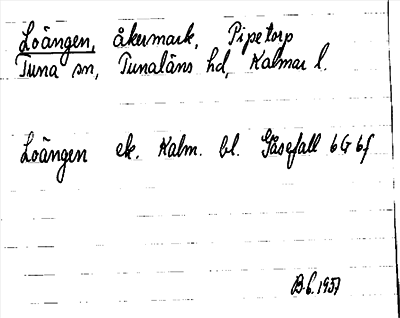 Loängen, åkermark, Pipetorp
Tuna sn, Tunaläns hd, Kalmar l.
Loängen ek. Kalm. bl. Gåsefall 6G6f
B.G. 1957